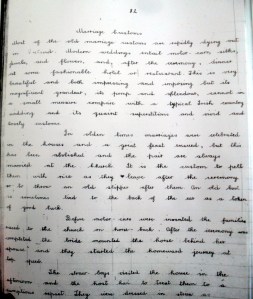 82
Marriage Customs
Most of the old marriage customs are rapidly dying out
Modern weddings entail motor cars, autos,
jewels and flowers, and, after the ceremony, dinner
at some fashionable hotel or restaurant. This is very
beautiful and both impressing and inspiring but its
magnificent grandeur, its pomp and splendour, cannot in
a small measure compare with a typical Irish country
wedding and its quaint superstitions and weird and
lovely customs.
In olden times marriages were celebrated
in the houses and a great feast ensued, but this
has been abolished and the pair are always
married at the Church. It is the custom to pelt
them with rice as they leave after the ceremony
or to throw an old slipper after them. An old boot
is sometimes tied to the back of the car as a token
of good luck.
Before motor cars were invented the families
rode to the church on horse-back. After the ceremony was
completed the bride mounted the horse behind her
spouse and they started the homeward journey at
top speed.
The straw boys visited the house in the
afternoon and the host has to treat them to a
sumptuous repast. They were dressed in straw